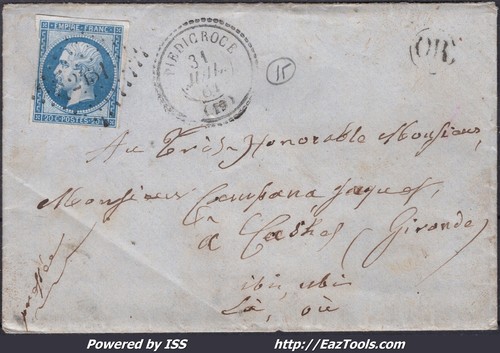 EMPIRE FRANC.
20 C. POSTES 20 C.
PIEDICROCE
31
JUIL.
(19)
15
(OR)
Au Très-Honorable Monsieur,
Monsieur Campana Jaques,
à
(Gironde)
ibi, ubi
Là, où
pressée
Powered by ISS
http://EazTools.com